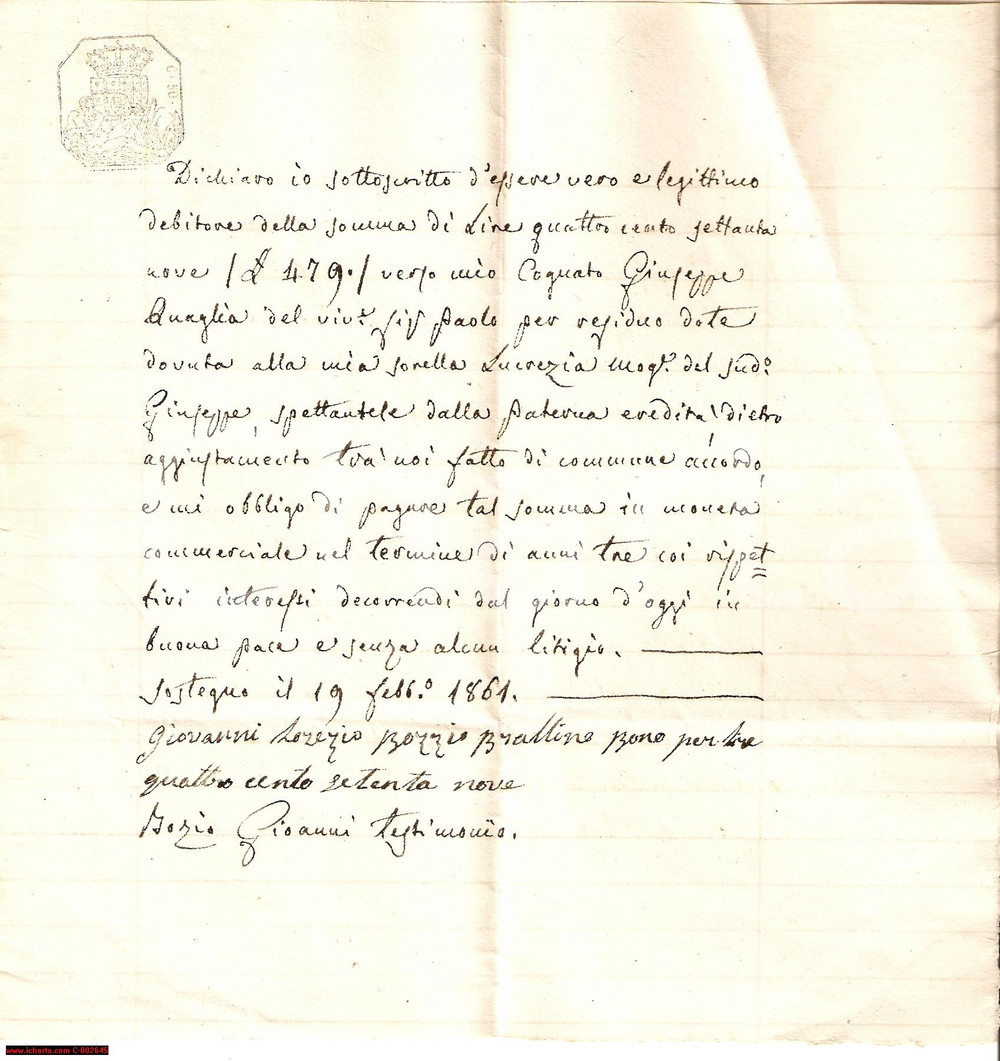 0.50.
Dichiaro io sottoscritto d'essere vero e legittimo
debitore della somma di Lire quattro cento settanta
nove /£ 479./ verso mio Cognato Giuseppe
Quaglia del viv.e Sig.r Paolo per residuo dote
dovuta alla mia sorella Lucrezia mog.e del sud.o
Giuseppe, spettantele dalla Paterna eredità dietro
aggiustamento trà noi fatto di commune accordo,
e mi obbligo di pagare tal somma in moneta
commerciale nel termine di anni tre coi rispet=
tivi interessi decorrendi dal giorno d'oggi in
buona pace e senza alcun litigio.
Sostegno il 19 febb.o 1861.
Giovanni Bozzio Bono per lire
quattro cento setenta nove
Bozio Gioanni testimonio.
www.icharta.com C-002645